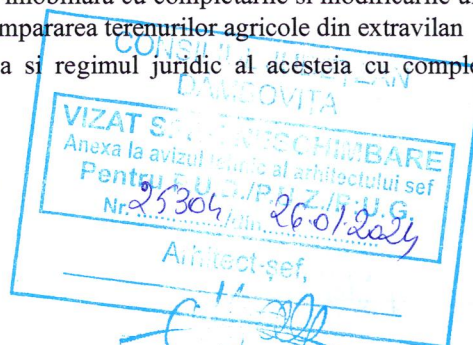 imobiliara cu completarile si modificarile
mpararea terenurilor agricole din extravilan
a si regimul juridic al acesteia cu comple
CONSILIUL JUDETEAN
DAMBOVITA
VIZAT SPRE NESCHIMBARE
Anexa la avizul tehnic al arhitectului sef
Pentru P.U.D./P.U.Z./P.U.G.
Nr. 25304 /din 26.01.2024
Arhitect-șef,